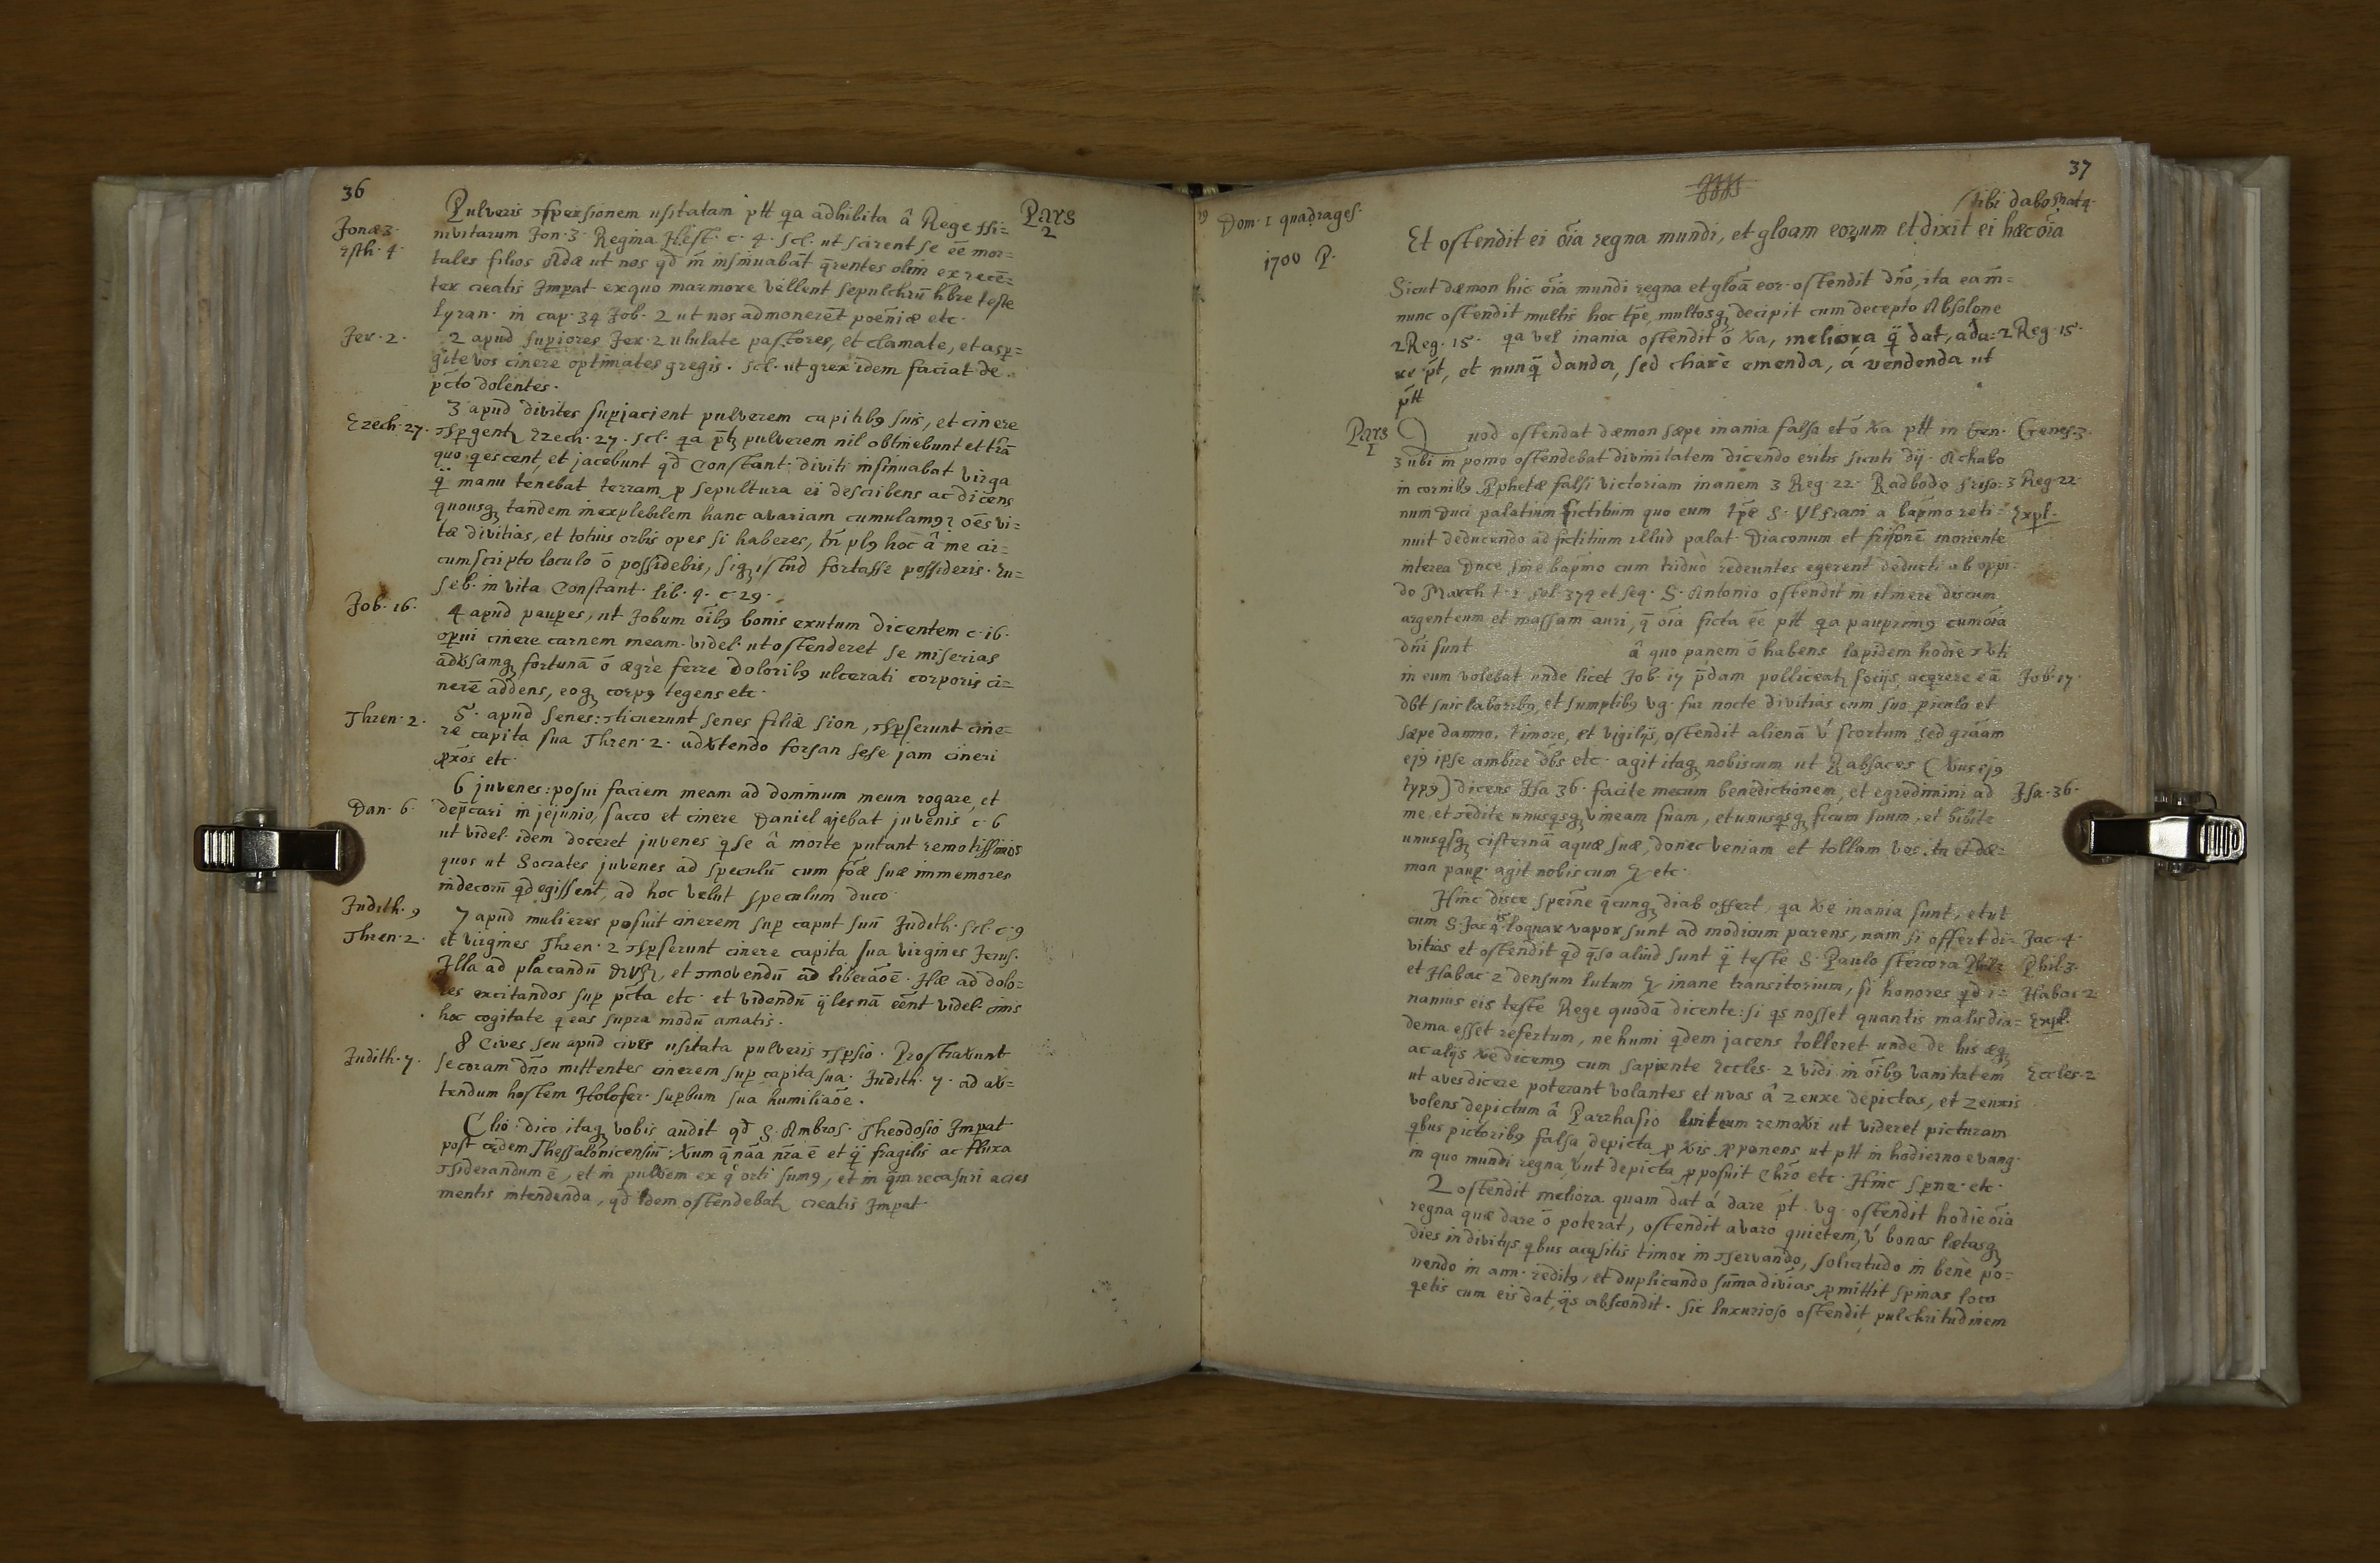 36
Pars
2
Pulveris ɔspersionem usitatam ptt qa adhibita â Rege Ni=
Jonæ 3.
nivitarum Jon. 3. Regina Hest. c. 4. scl. ut scirent se ēē mor=
Esth. 4.
tales filios Adæ ut nos qd m̄ insinuabāt q̄rentes olim ex recē=
ter creatis Imp̄at ex quo marmore vellent sepulchrū hbre teste
Lyran. in cap. 34 Job. 2 ut nos admonerēt poeñiæ etc.
Jer. 2.
2 apud sup̄iores Jer. 2 ululate pastores, et clamate, et asp̄=
gite vos cinere optimates gregis. scl. ut grex idem faciat de
pc̄to dolentes.
3 apud divites sup̄jacient pulverem capitibꝯ suis, et cinere
Ezech. 27.
ɔsp̄gentꝛ Ezech. 27. scl. qa p̄tꝫ pulverem nil obtinebunt et trā
quo qescent, et jacebunt qd Constant. diviti insinuabat virga
q̄ manu tenebat terram p sepultura ei describens ac dicens
quousqꝫ tandem inexplebilem hanc avariam cumulamꝯ? oēs vi=
tæ divitias, et totius orbis opes si haberes, tn̄ plꝯ hoc â me cir=
cumscripto loculo ō possidebis, siqꝫ istud fortasse possideris. Eu=
seb. in vita Constant. lib. 4. c 29.
Job. 16.
4 apud paup̄es, ut Jobum oībꝯ bonis exutum dicentem c. 16.
op̄ui cinere carnem meam. videl. ut ostenderet se miserias
adv̄samqꝫ fortunā ō ægrè ferre doloribꝯ ulcerati corporis ci=
nerē addens, eoqꝫ corpꝯ tegens etc.
Thren. 2.
5. apud senes: ɔticuerunt senes filiæ sion, ɔsp̄serunt cine=
re capita sua Thren. 2. adv̄tendo forsan sese jam cineri
p̄xōs etc.
6 juvenes: posui faciem meam ad dominum meum rogare, et
Dan. 6.
dep̄cari in jejunio, sacco et cinere Daniel ajebat juvenis c. 6
ut videl. idem doceret juvenes q se â morte putant remotissimos
quos ut Socrates juvenes ad speculū cum fōæ suæ immemores
indecorū qd egissent, ad hoc velut speculum duco.
Judith. 9
7 apud mulieres posuit cinerem sup̄ caput suū Judith. scl. c. 9
Thren. 2.
et virgines Thren. 2 ɔsp̄serunt cinere capita sua virgines Jerus.
Illa ad placandū et ɔmovendū ad liberaōē. Hæ ad dolo=
res excitandos sup̄ pc̄ta etc. et videndū q̄les nā ēēnt videl. cinis
hoc cogitate q eas supra modū amatis.
8 Cives seu apud cives usitata pulveris ɔsp̄sio. Prostravunt
Judith. 7.
se coram dn̄o mittentes cinerem sup̄ capita sua. Judith. 7. ad av̄=
tendum hostem Holofer. sup̄bum sua humiliaōe.
Clio. dico itaqꝫ vobis audit. qd S. Ambros. Theodosio Imp̄at
post cædem Thessalonicensiū: Verum q̄ nāā nr̄a ē et q̄ fragilis ac fluxa
ɔsiderandum ē, et in pulv̄em ex q̄ orti sumꝯ, et in q̄m recasuri acies
mentis intendenda, qd idem ostendebatꝛ creatis Imp̄at.
37
Dom. 1 quadrages.
1700 P.
tibi dabo Mat 4.
Et ostendit ei oīa regna mundi, et gloam eorum et dixit ei hæc oīa
Sicut dæmon hic oīa mundi regna et gloā eor. ostendit dn̄o, ita eam̄=
nunc ostendit multis hoc tp̄e, multosqꝫ decipit cum decepto Absolone
2 Reg. 15. qa vel inania ostendit ō v̄a, meliora q̄ dat, a da= 2 Reg. 15.
re p̄t, et nunq̄ danda, sed charè emenda, á vendenda ut
p̄tt
Pars
1
Quod ostendat dæmon sæpe inania falsa et ō v̄a ptt in Gen. Genes. 3.
3 ubi in pomo ostendebat divinitatem dicendo eritis sicuti dij. Achabo
in cornibꝯ P̄phetæ falsi victoriam inanem 3 Reg. 22. Radbodo friso= 3 Reg 22.
num Duci palatium fictitium quo eum tp̄e S. Vlfrani a bap̄mo reti= Expl.
nuit deducendo ad fictitium illud palat. Diaconum et frisonē moriente
interea Duce sine bap̄mo cum triduò redeuntes egerent deducti ab oppi=
do March t. 1 fol. 374 et seq. S. Antonio ostendit in itinere discum
argenteum et massam auri, q̄ oīa ficta ēē ptt qa paup̄rimꝯ cum oīa
dn̄i sunt â quo panem ō habens lapidem hodie ɔv̄ti
in eum volebat unde licet Job. 17 p̄dam polliceatꝛ socijs, acqrere eā Job. 17.
dbt suis laboribꝯ, et sumptibꝯ vg. fur nocte divitias cum suo p̄iculo et
sæpe damno, timore, et vigilijs, ostendit alienā v́ scortum sed grāam
ejꝯ ipse ambire dbs etc. agit itaqꝫ nobiscum ut Rabsaces (V̄us ejꝯ
typꝯ) dicens Isa 36. facite mecum benedictionem, et egredimini ad Isa. 36.
me, et ɔedite unusqsqꝫ vineam suam, et unusqsqꝫ ficum suum, et bibite
unusqsqꝫ cisternā aquæ suæ, donec veniam et tollam vos. tn et dæ=
mon paup̄. agit nobiscum etc.
Hinc disce sp̄cine q̄cunqꝫ diab offert, qa v̄e inania sunt, et ut
cum S. Jac q. 15 loquar vapor sunt ad modicum parens, nam si offert di= Jac. 4.
vitias et ostendit qd q̄so aliud sunt q̄ teste S. Paulo stercora Phil. Phil. 3.
et Habac 2 densum lutum inane transitorium, si honores qd i= Habac 2
nanius eis teste Rege quodā dicente: si qs nosset quantis malis dia= Expl.
dema esset refertum, ne humi qdem jacens tolleret unde de his æqꝫ
ac alijs v̄e dicemꝯ cum sapiente Eccles. 2 vidi in oībꝯ vanitatem Eccles. 2
ut aves dicere poterant volantes et uvas â Zeuxe depictas, et Zeuxis
volens depictum â Parrhasio linteum remov̄i ut videret picturam
qbus pictoribꝯ falsa depicta p v̄is p̄ponens ut ptt in hodierno evang.
in quo mundi regna v̄ut depicta p̄posuit Chrō etc. Hinc sp̄ne. etc.
2 ostendit meliora quam dat á dare p̄t. vg. ostendit hodie oīa
regna quæ dare ō poterat, ostendit avaro quietem, v́ bonos lætasqꝫ
dies in divitijs qbus acqsitis timor in ɔservando, solicitudo in benè po=
nendo in ann. reditꝯ, et duplicando sūma divias p̄mittit spinas loco
qetis cum eis dat, q̄s abscondit. Sic luxurioso ostendit pulchritudinem